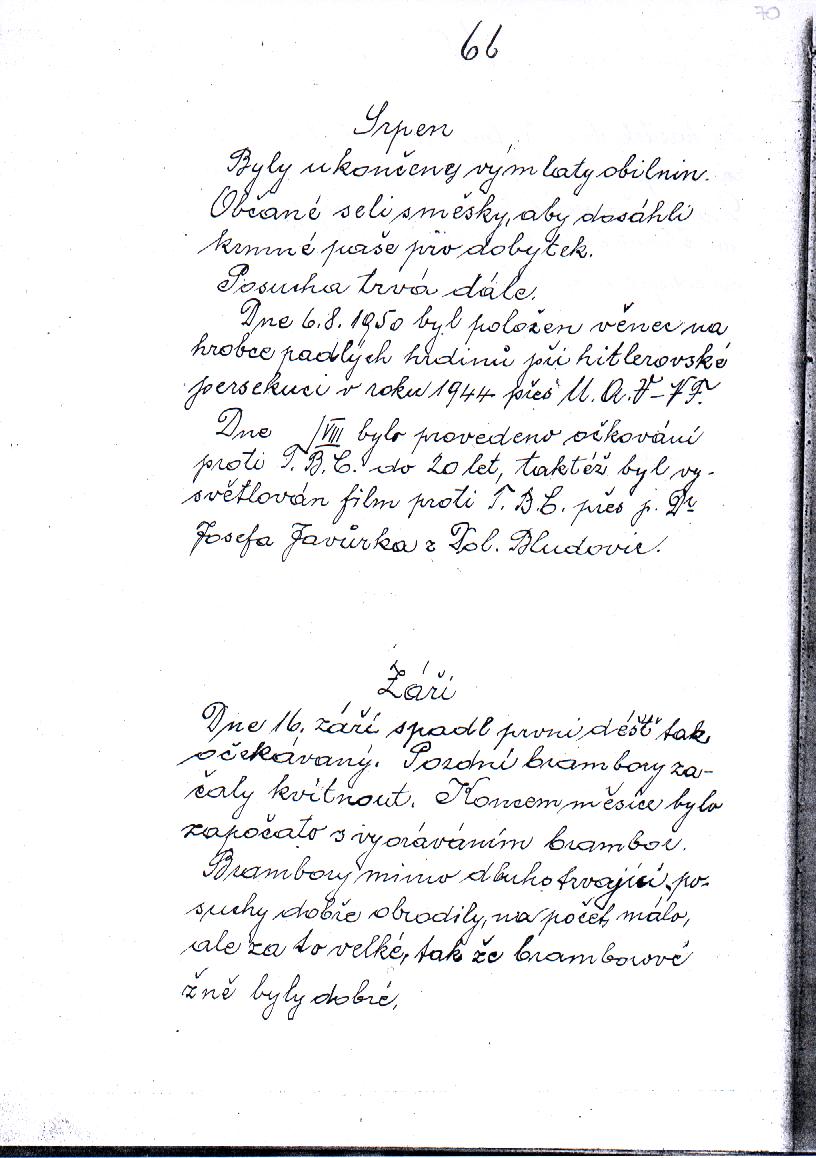 70
66
Srpen
Byly ukončeny výmlaty obilnin.
Občané seli směsky, aby dosáhli
krmné paše pro dobytek.
Posucha trvá dále.
Dne 6.8.1950 byl položen věnec na
hrobce padlých hrdinů při hitlerovské
persekuci v roku 1944 přes
Dne /VIII bylo provedeno očkování
proti T.B.C. do 20 let, taktéž byl vy-
světlován film proti T.B.C. přes p. Dr
Josefa Javůrka z Dol. Bludovic.
Září
Dne 16. září spadl první déšť tak
očekávaný. Pozdní brambory za-
čaly kvítnout. Koncem měsíce bylo
započato s vyoráváním brambor.
Brambory mimo dluhotrvající po-
suchy dobře obrodily, na počet málo,
ale za to velké, tak že bramborové
žně byly dobré.